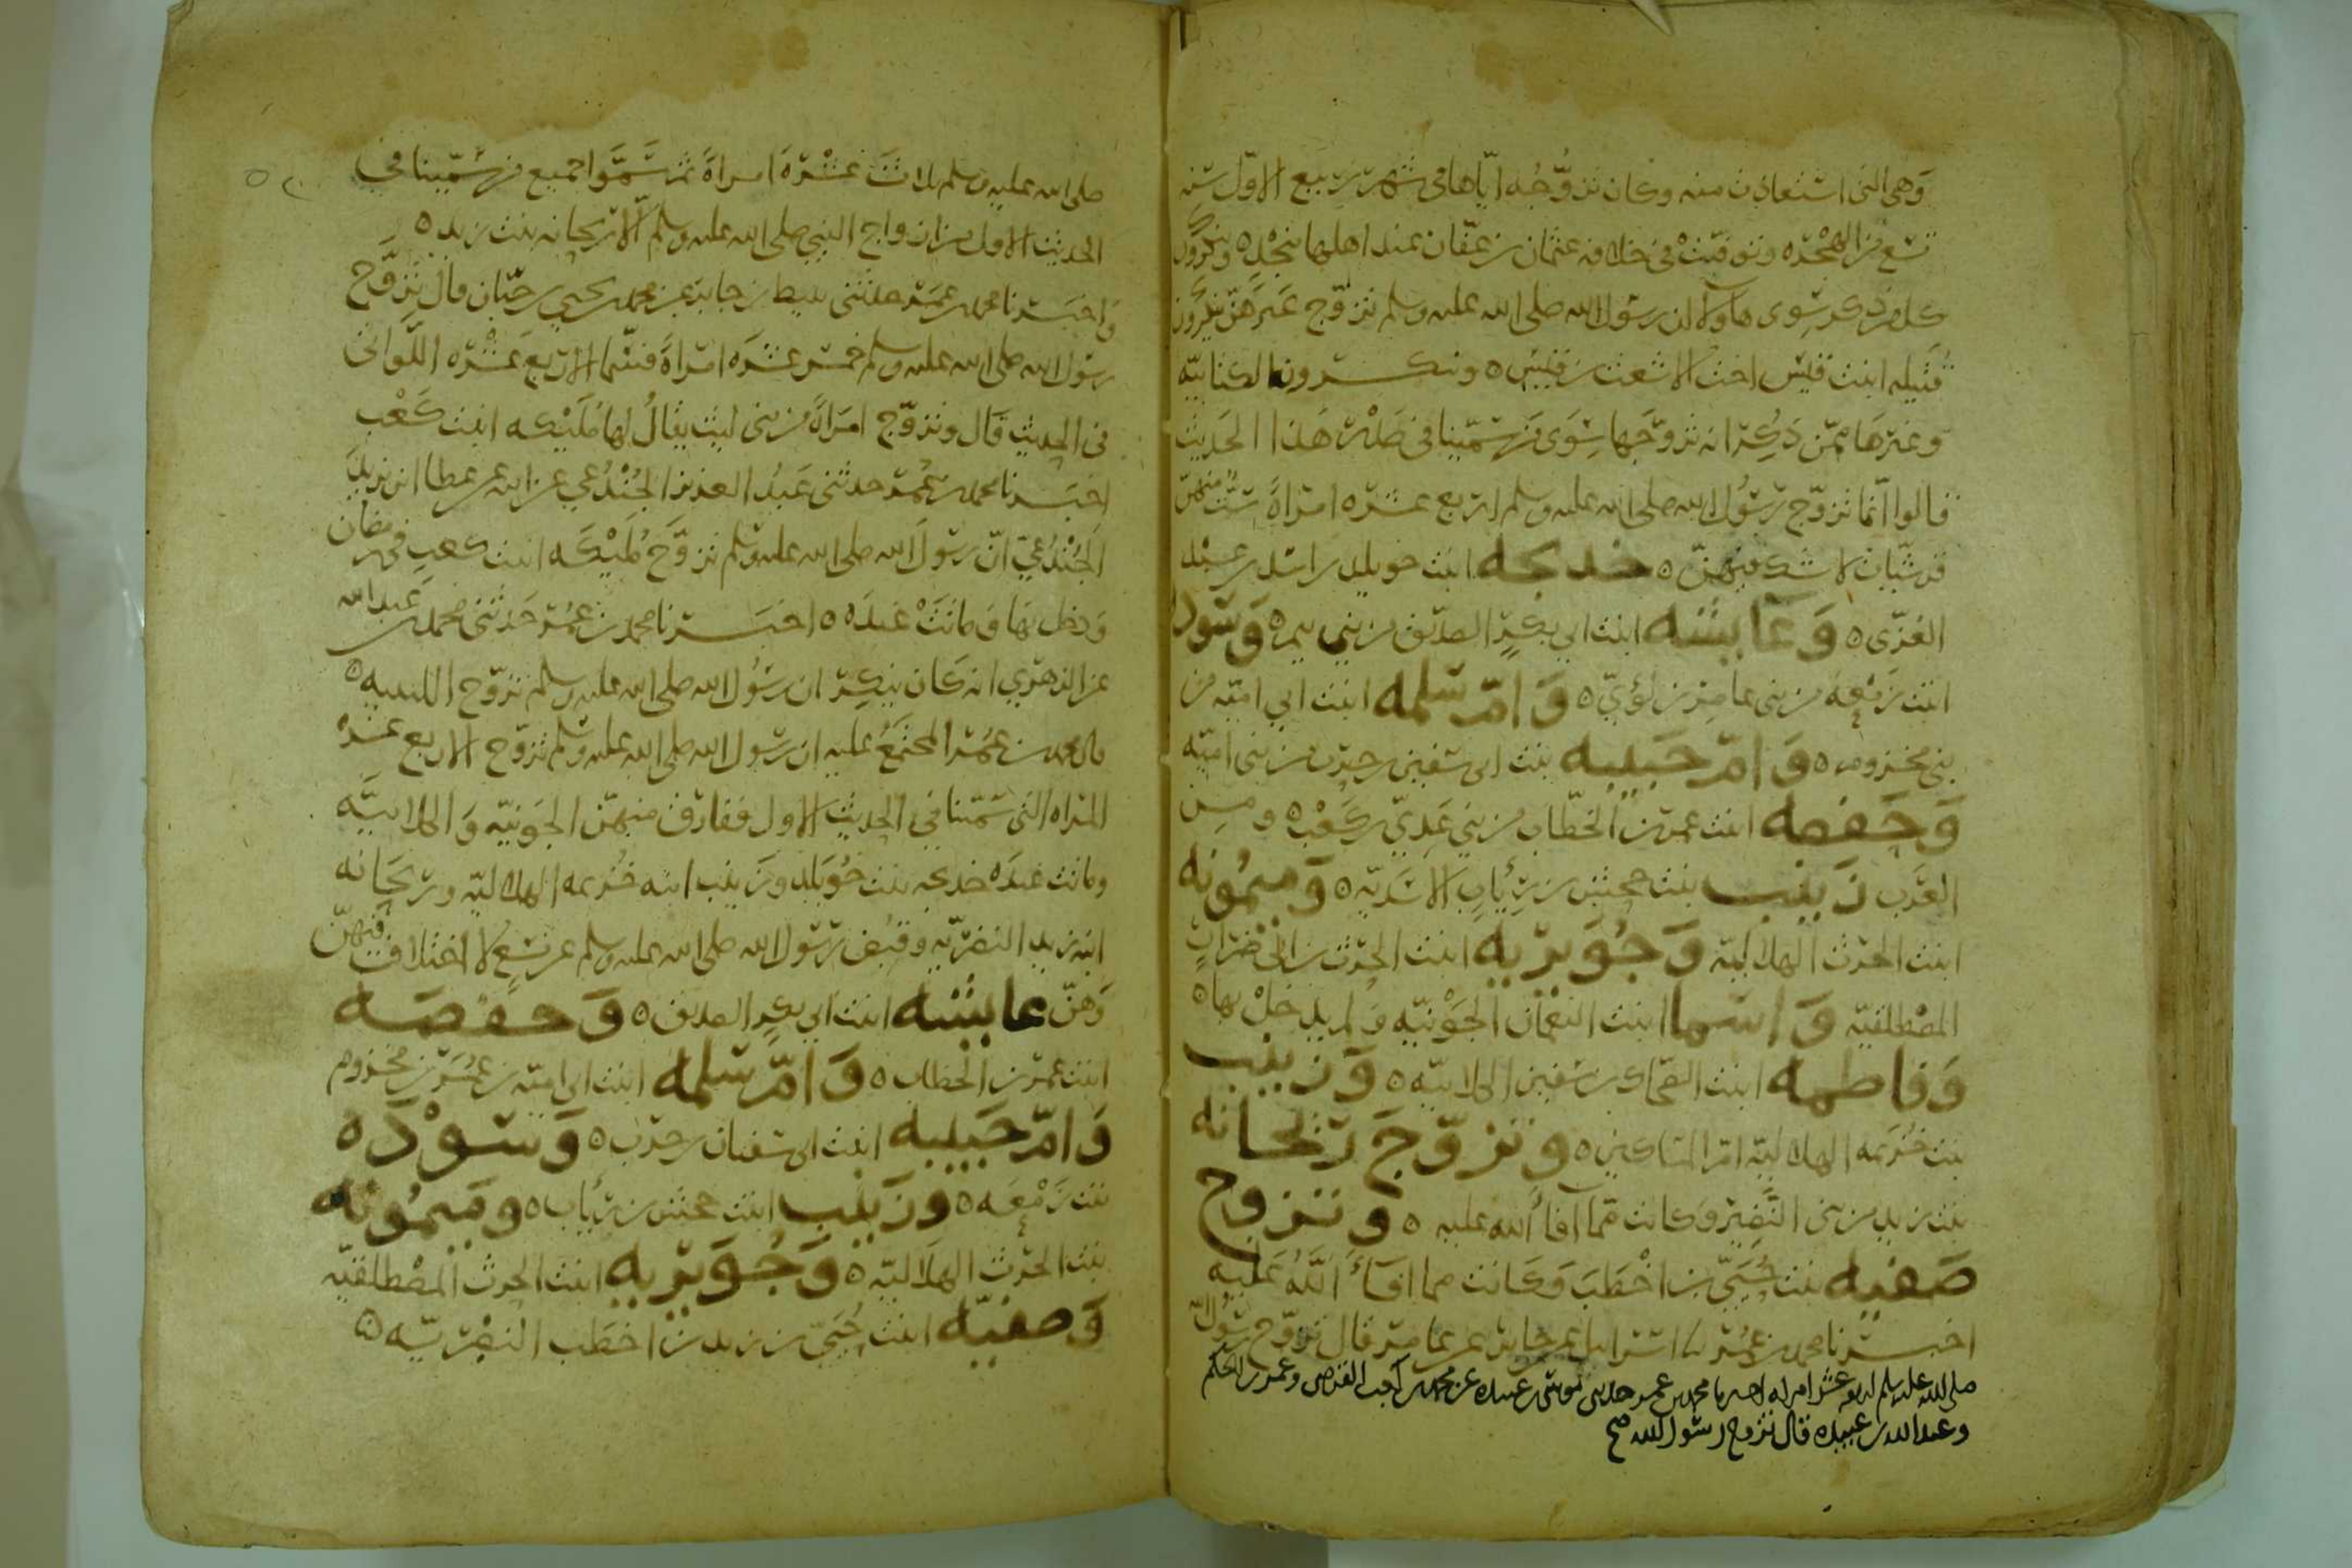 وهي التي استعاذت منه وكان تزوجه اياها في شهر ربيع الاول سنه
تسع من الهجره وتوفيت في خلافه عثمان بن عفان عند اهلها بنجد ه وذكرون
كل من ذكر سوى هاولا ان رسول الله صلى الله عليه وسلم تزوج غيرهن
قتيله ابنت قيس اخت الاشعث بن قيس ه وينكرون الكنانيه
وغيرها ممن ذكر انه تزوجها سوى من سمينا في صدر هذا الحديث
قالوا انما تزوج رسول الله صلى الله عليه وسلم اربع عشره امراة ست منهن
قرشيات لا شك فيهن ه خديجه ابنت خويلد بن اسد بن عبد
العزى ه وعايشه ابنت ابي بكر الصديق من بني تيم ه وسوده
ابنت زمعه من بني عامر بن لؤي ه وام سلمه ابنت ابي اميه من
بني مخزوم ه وام حبيبه بنت ابي سفين بن حرب من بني اميه
وحفصه ابنت عمر بن الخطاب من بني عدي بن كعب ه ومن
العرب زينب بنت جحش بن رئاب الاسديه ه وميمونه
ابنت الحرث الهلاليه وجويريه ابنت الحرث بن ابي ضرار
المصطلقيه واسما ابنت النعمان الجونيه ولم يدخل بها ه
وفاطمه ابنت الضحاك بن سفين الكلابيه ه وزينب
بنت خزيمه الهلاليه ام المساكين ه وتزوج ريحانه
بنت زيد من بني النضير وكانت مما افا الله عليه ه وتزوج
صفيه بنت حيي بن اخطب وكانت مما افا الله عليه
اخبرنا محمد بن عمر نا اسرايل عن جابر عن عامر قال تزوج رسول الله
صلى الله عليه وسلم اربع عشر امراه اخبرنا محمد بن عمر حدثني موسى بن عبيده عن محمد بن كعب القرظي وعمر بن الحكم
وعبد الله بن عبيده قال تزوج رسول الله صح
صلى الله عليه وسلم ثلاث عشرة امراة ثم سموا جميع من سمينا في
الحديث الاول من ازواج النبي صلى الله عليه وسلم الا ريحانه بنت زيد ه
واخبرنا محمد بن عمر حدثني بن جابر عن محمد بن يحيى بن حبان قال تزوج
رسول الله صلى الله عليه وسلم خمس عشره امراة فسمى الاربع عشره اللواتي
في الحديث قال وتزوج امراة من بني ليث يقال لها مليكه ابنت كعب
اخبرنا محمد بن عمر حدثني عبد العزيز الجندعي عن ابيه عن عطا بن يزيد
الجندعي ان رسول الله صلى الله عليه وسلم تزوج مليكه ابنت كعب في رمضان
ودخل بها وماتت عنده ه اخبرنا محمد بن عمر حدثني محمد بن عبد الله
عن الزهري انه كان ينكر ان رسول الله صلى الله عليه وسلم تزوج الليثيه ه
قال محمد بن عمر المجتمع عليه ان رسول الله صلى الله عليه وسلم تزوج الاربع عشره
المراه التي سمينا في الحديث الاول ففارق منهن الجونيه والكلابيه
وماتت عنده خديجه بنت خويلد وزينب ابنه خزيمه الهلاليه وريحانه
ابنه زيد النضريه وقبض رسول الله صلى الله عليه وسلم عن تسع لا اختلاف فيهن
وهن عايشه ابنت ابي بكر الصديق ه وحفصه
ابنت عمر بن الخطاب ه وام سلمه ابنت ابي اميه بن عمر بن مخزوم
وام حبيبه ابنت ابي سفيان بن حرب ه وسوده
بنت زمعه ه وزينب ابنت جحش بن رئاب ه وميمونه
بنت الحرث الهلاليه ه وجويريه ابنت الحرث المصطلقيه
وصفيه ابنت حيي بن زيد بن اخطب النضريه ه